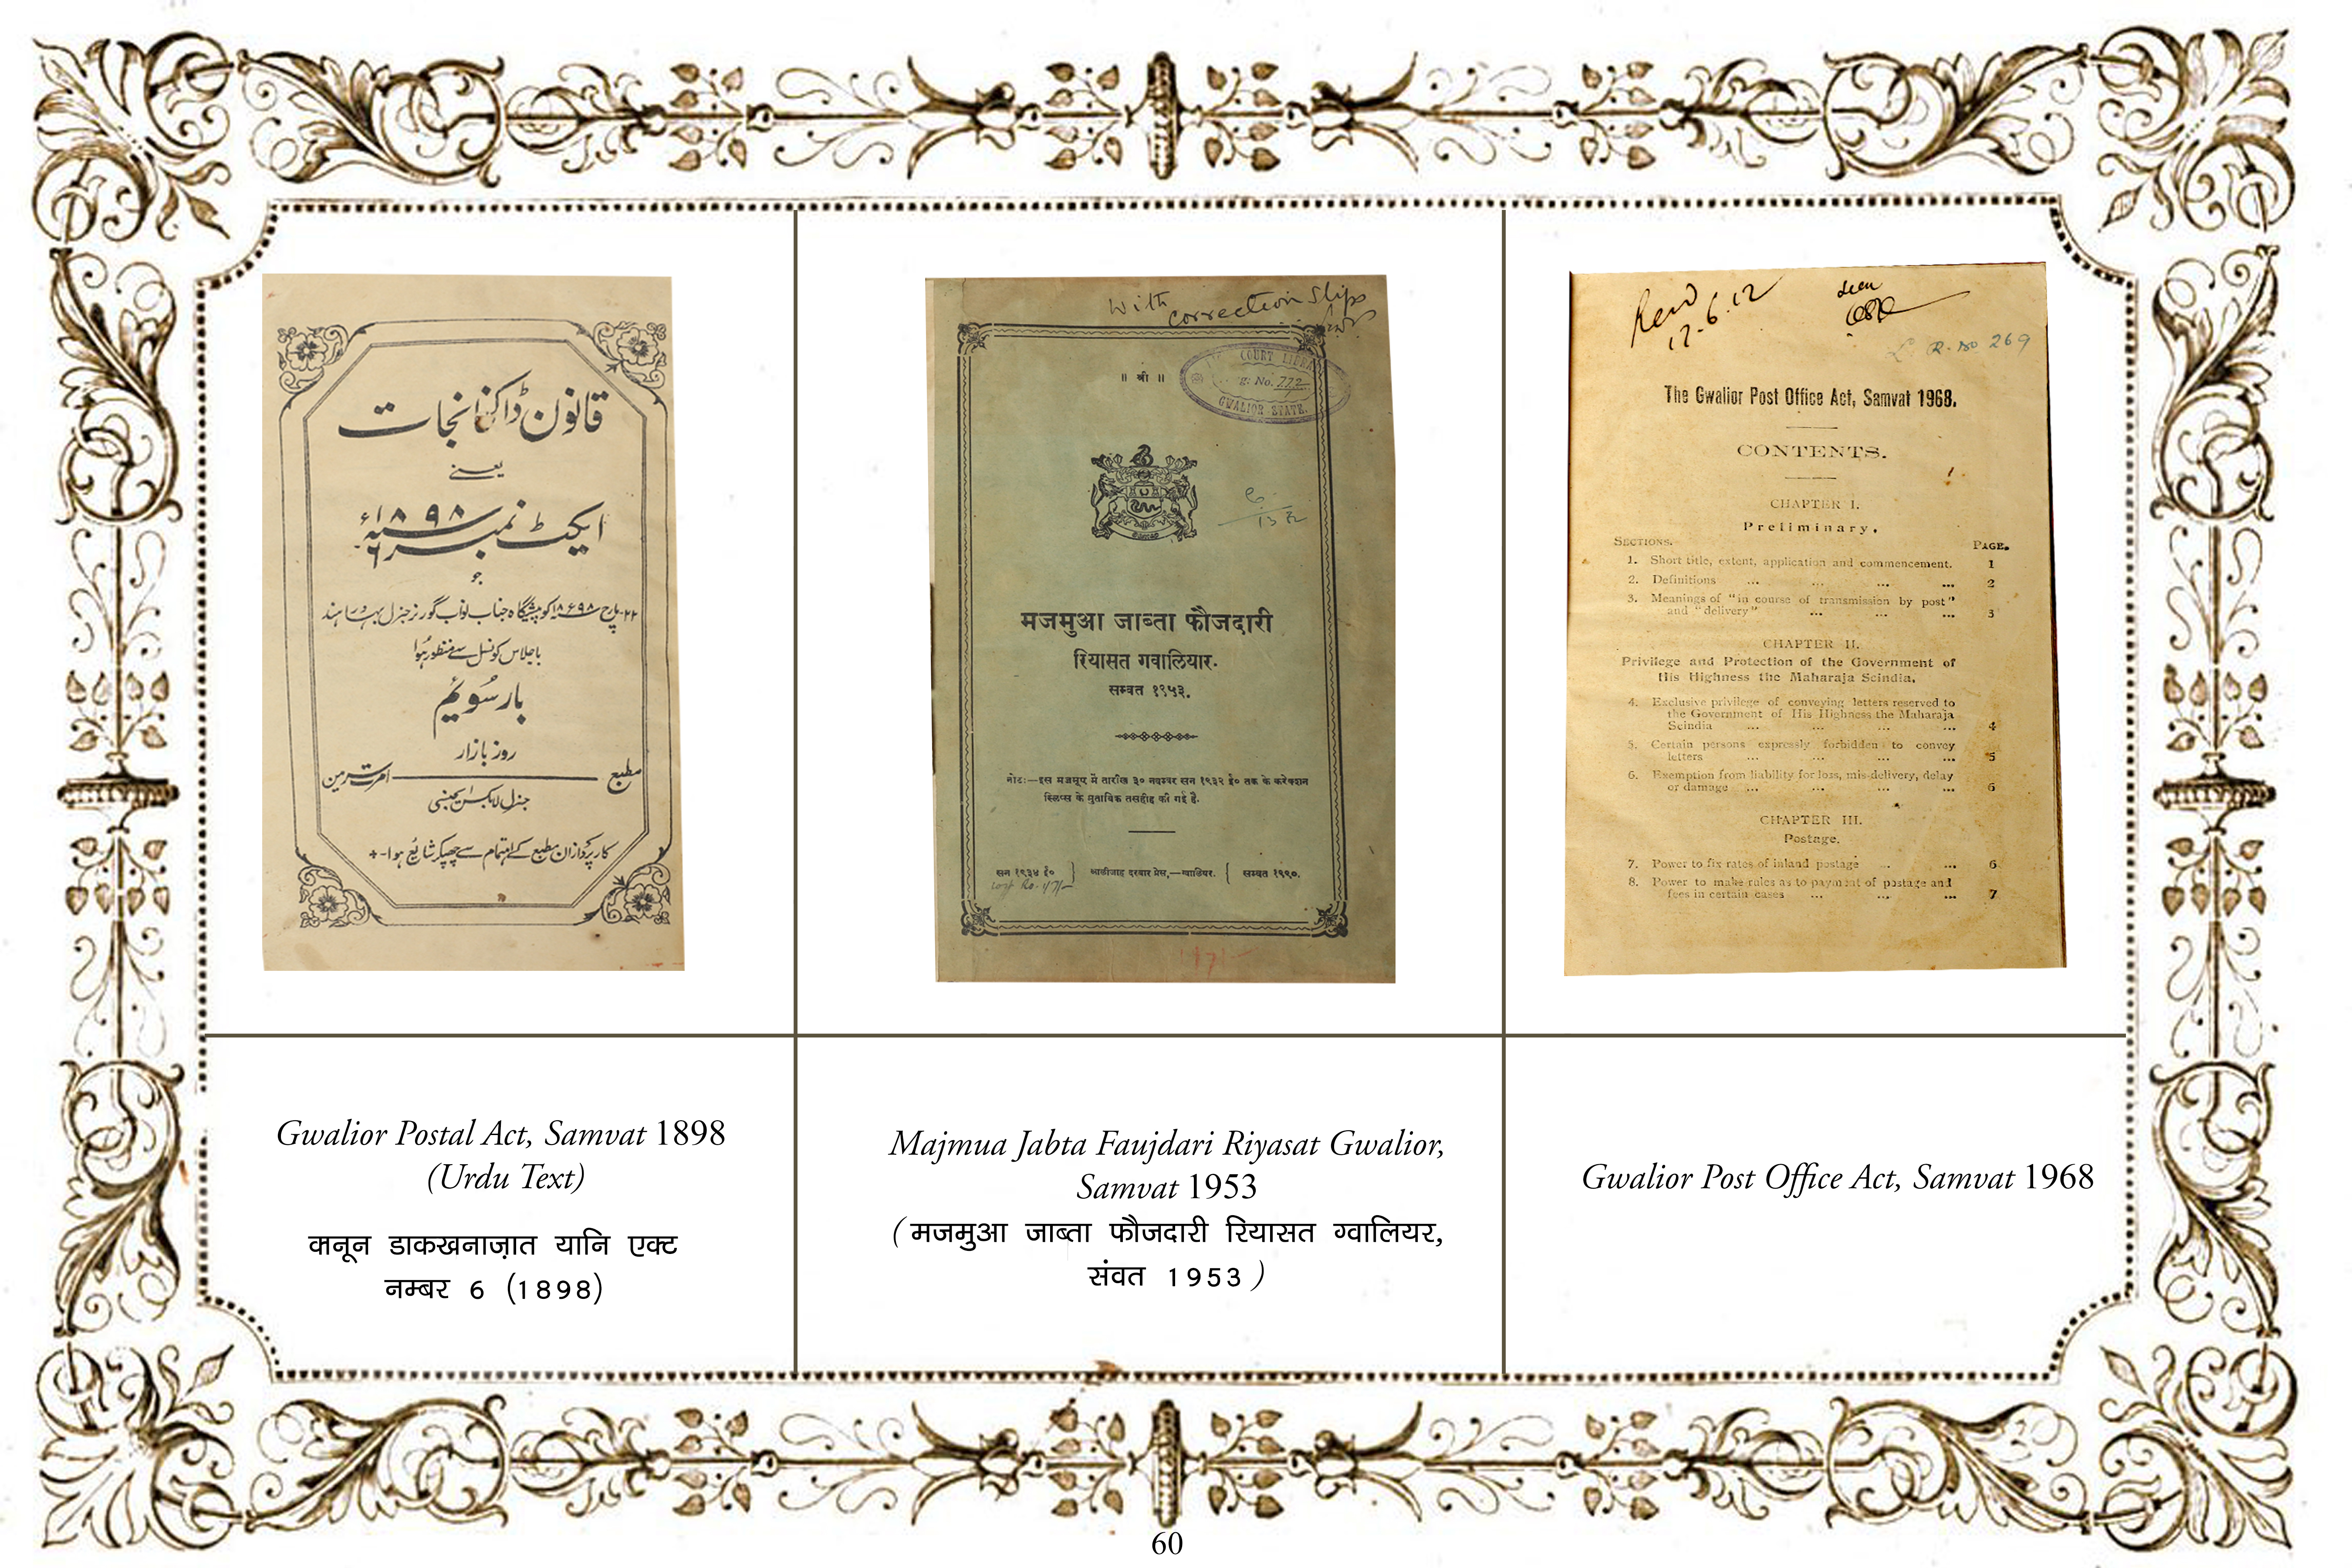 قانون ڈاکخانجات
یعنے
ایکٹ نمبر ۶ سنہ ۱۸۹۸ء
جو
۲۲ مارچ ۱۸۹۸ء کو پیشگاہ جناب نواب گورنر جنرل بہادر ہند
باجلاس کونسل سے منظور ہوا
بار سویم
روز بازار
مطبع امرتسر مین
جنرل لا بکس ایجنسی
کارپردازان مطبع کے اہتمام سے چھپکر شائع ہوا-+
With
correction slips
COURT LIBRA
g: No. 772
GWALIOR STATE.
॥ श्री ॥
मजमुआ जाब्ता फौजदारी
रियासत गवालियार.
सम्वत १९५३.
नोटः—इस मजमूए में तारीख ३० नवम्बर सन १९३२ ई० तक के करेक्शन
स्लिप्स के मुताबिक तसहीह की गई है.
सन १९३४ ई० } आलीजाह दरबार प्रेस,—ग्वालियर. { सम्वत १९९०.
17-6.12
Seen
R. no 269
The Gwalior Post Office Act, Samvat 1968.
CONTENTS.
CHAPTER I.
Preliminary.
SECTIONS. PAGE.
1. Short title, extent, application and commencement. 1
2. Definitions ... ... ... ... 2
3. Meanings of "in course of transmission by post"
and "delivery" ... ... ... 3
CHAPTER II.
Privilege and Protection of the Government of
His Highness the Maharaja Scindia.
4. Exclusive privilege of conveying letters reserved to
the Government of His Highness the Maharaja
Scindia ... ... ... ... 4
5. Certain persons expressly forbidden to convey
letters ... ... ... ... 5
6. Exemption from liability for loss, mis-delivery, delay
or damage ... ... ... ... 6
CHAPTER III.
Postage.
7. Power to fix rates of inland postage ... ... 6
8. Power to make rules as to payment of postage and
fees in certain cases ... ... ... 7
Gwalior Postal Act, Samvat 1898
(Urdu Text)
कानून डाकखनाज़ात यानि एक्ट
नम्बर 6 (1898)
Majmua Jabta Faujdari Riyasat Gwalior,
Samvat 1953
(मजमुआ जाब्ता फौजदारी रियासत ग्वालियर,
संवत 1953)
Gwalior Post Office Act, Samvat 1968
60